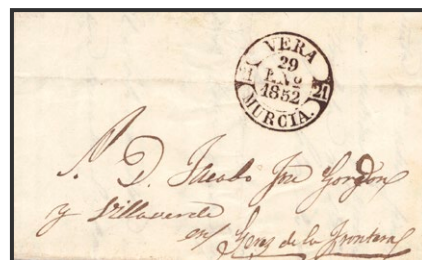 VERA
29
ENº
1852
21
MURCIA.
D. Jacobo Jph Gordon
y Villaverde
en Xerez de la Frontera